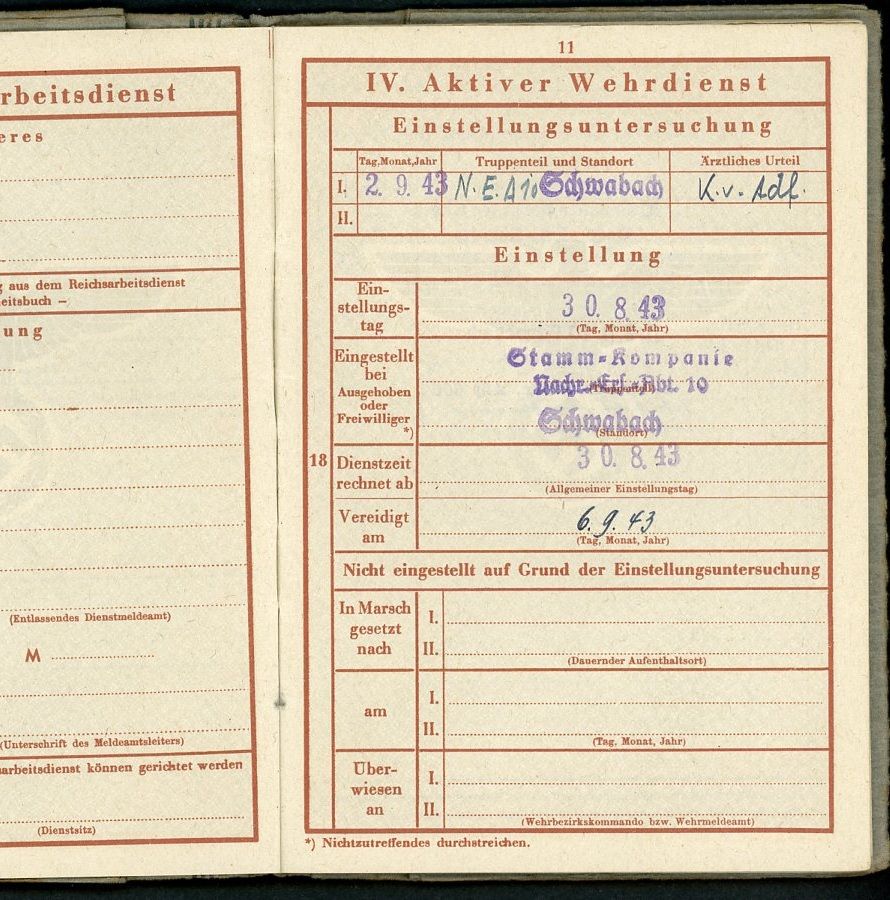 rbeitsdienst
eres
g aus dem Reichsarbeitsdienst
eitsbuch –
ung
(Entlassendes Dienstmeldeamt)
M
(Unterschrift des Meldeamtsleiters)
sarbeitsdienst können gerichtet werden
(Dienstsitz)
11
IV. Aktiver Wehrdienst
Einstellungsuntersuchung
Tag, Monat, Jahr Truppenteil und Standort Ärztliches Urteil
I. 2. 9. 43 N.E.A 10 Schwabach K.v. Adf.
II.
Einstellung
Ein-
stellungs-
tag
30. 8. 43
(Tag, Monat, Jahr)
Eingestellt
bei
Ausgehoben
oder
Freiwilliger
*)
Stamm-Kompanie
Nachr.-Ers.-Abt. 10
(Truppenteil)
Schwabach
(Standort)
18
Dienstzeit
rechnet ab
30. 8. 43
(Allgemeiner Einstellungstag)
Vereidigt
am
6. 9. 43
(Tag, Monat, Jahr)
Nicht eingestellt auf Grund der Einstellungsuntersuchung
In Marsch
gesetzt
nach
I.
II.
(Dauernder Aufenthaltsort)
am
I.
II.
(Tag, Monat, Jahr)
Über-
wiesen
an
I.
II.
(Wehrbezirkskommando bzw. Wehrmeldeamt)
*) Nichtzutreffendes durchstreichen.